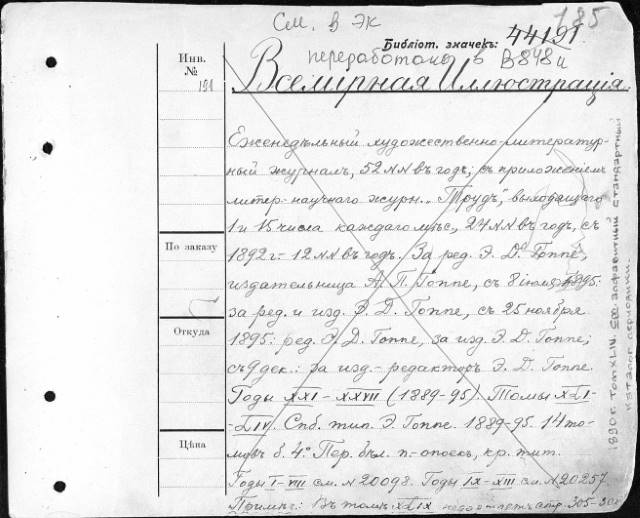 См. в ЭК
185
Библіот. значекъ: 44191
переработано в В848и
Инв.
№
191
Всемірная Иллюстрація.
Еженедѣльный художественно-литератур-
ный журналъ, 52 NN въ годъ; съ приложеніемъ
литер.-научнаго журн. „Трудъ", выходящаго
1 и 15 числа каждаго мѣс., 24 NN въ годъ, съ
1892 г. - 12 NN въ годъ. За ред. Э. Д. Гоппе,
По заказу
издательница А. П. Гоппе, съ 8 іюля 1895:
за ред. и изд. Э. Д. Гоппе, съ 25 ноября
Откуда
1895: ред. Э. Д. Гоппе, за изд. Э. Д. Гоппе;
съ 9 дек.: за изд.-редакторъ Э. Д. Гоппе.
Годы XXI-XXVII (1889-95). Томы XLI-
-LIV. Спб. тип. Э. Гоппе. 1889-95. 14 то-
Цѣна
мовъ б. 4° Пер. бѣл. п. кр. тит.
Годы I-VII см. N 20098. Годы IX-XIII см. N 20257
Примѣч: Въ томѣ XLIX недостаетъ стр. 305-30
1890 г. Том XLIV. См. алфавитный стандартный
каталог периодики.